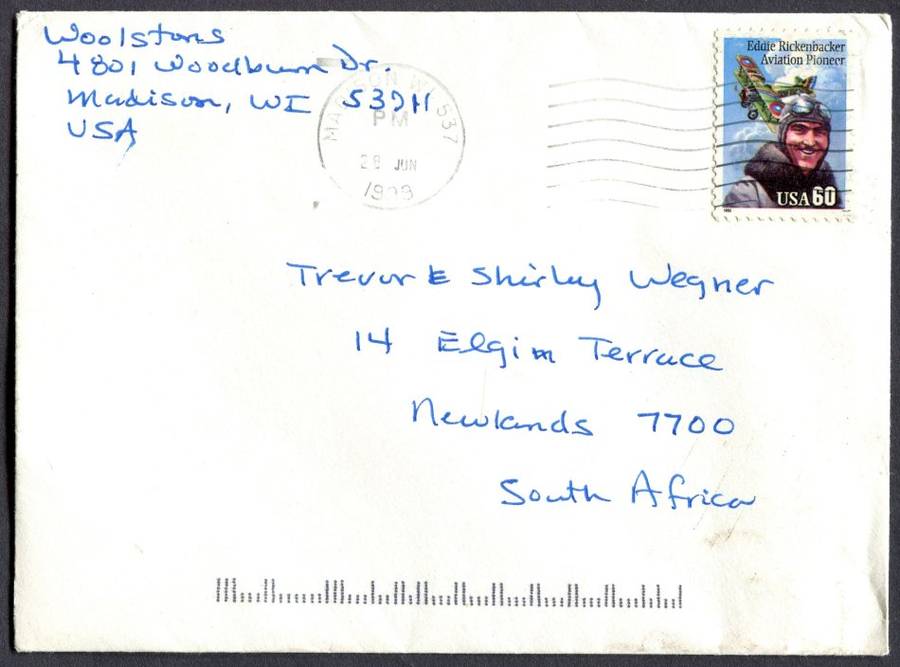 Woolstons
4801 Woodburn Dr.
Madison, WI 53711
USA
MADISON WI 537
PM
28 JUN
1999
Eddie Rickenbacker
Aviation Pioneer
USA 60
Trevor & Shirley Wegner
14 Elgin Terrace
Newlands 7700
South Africa